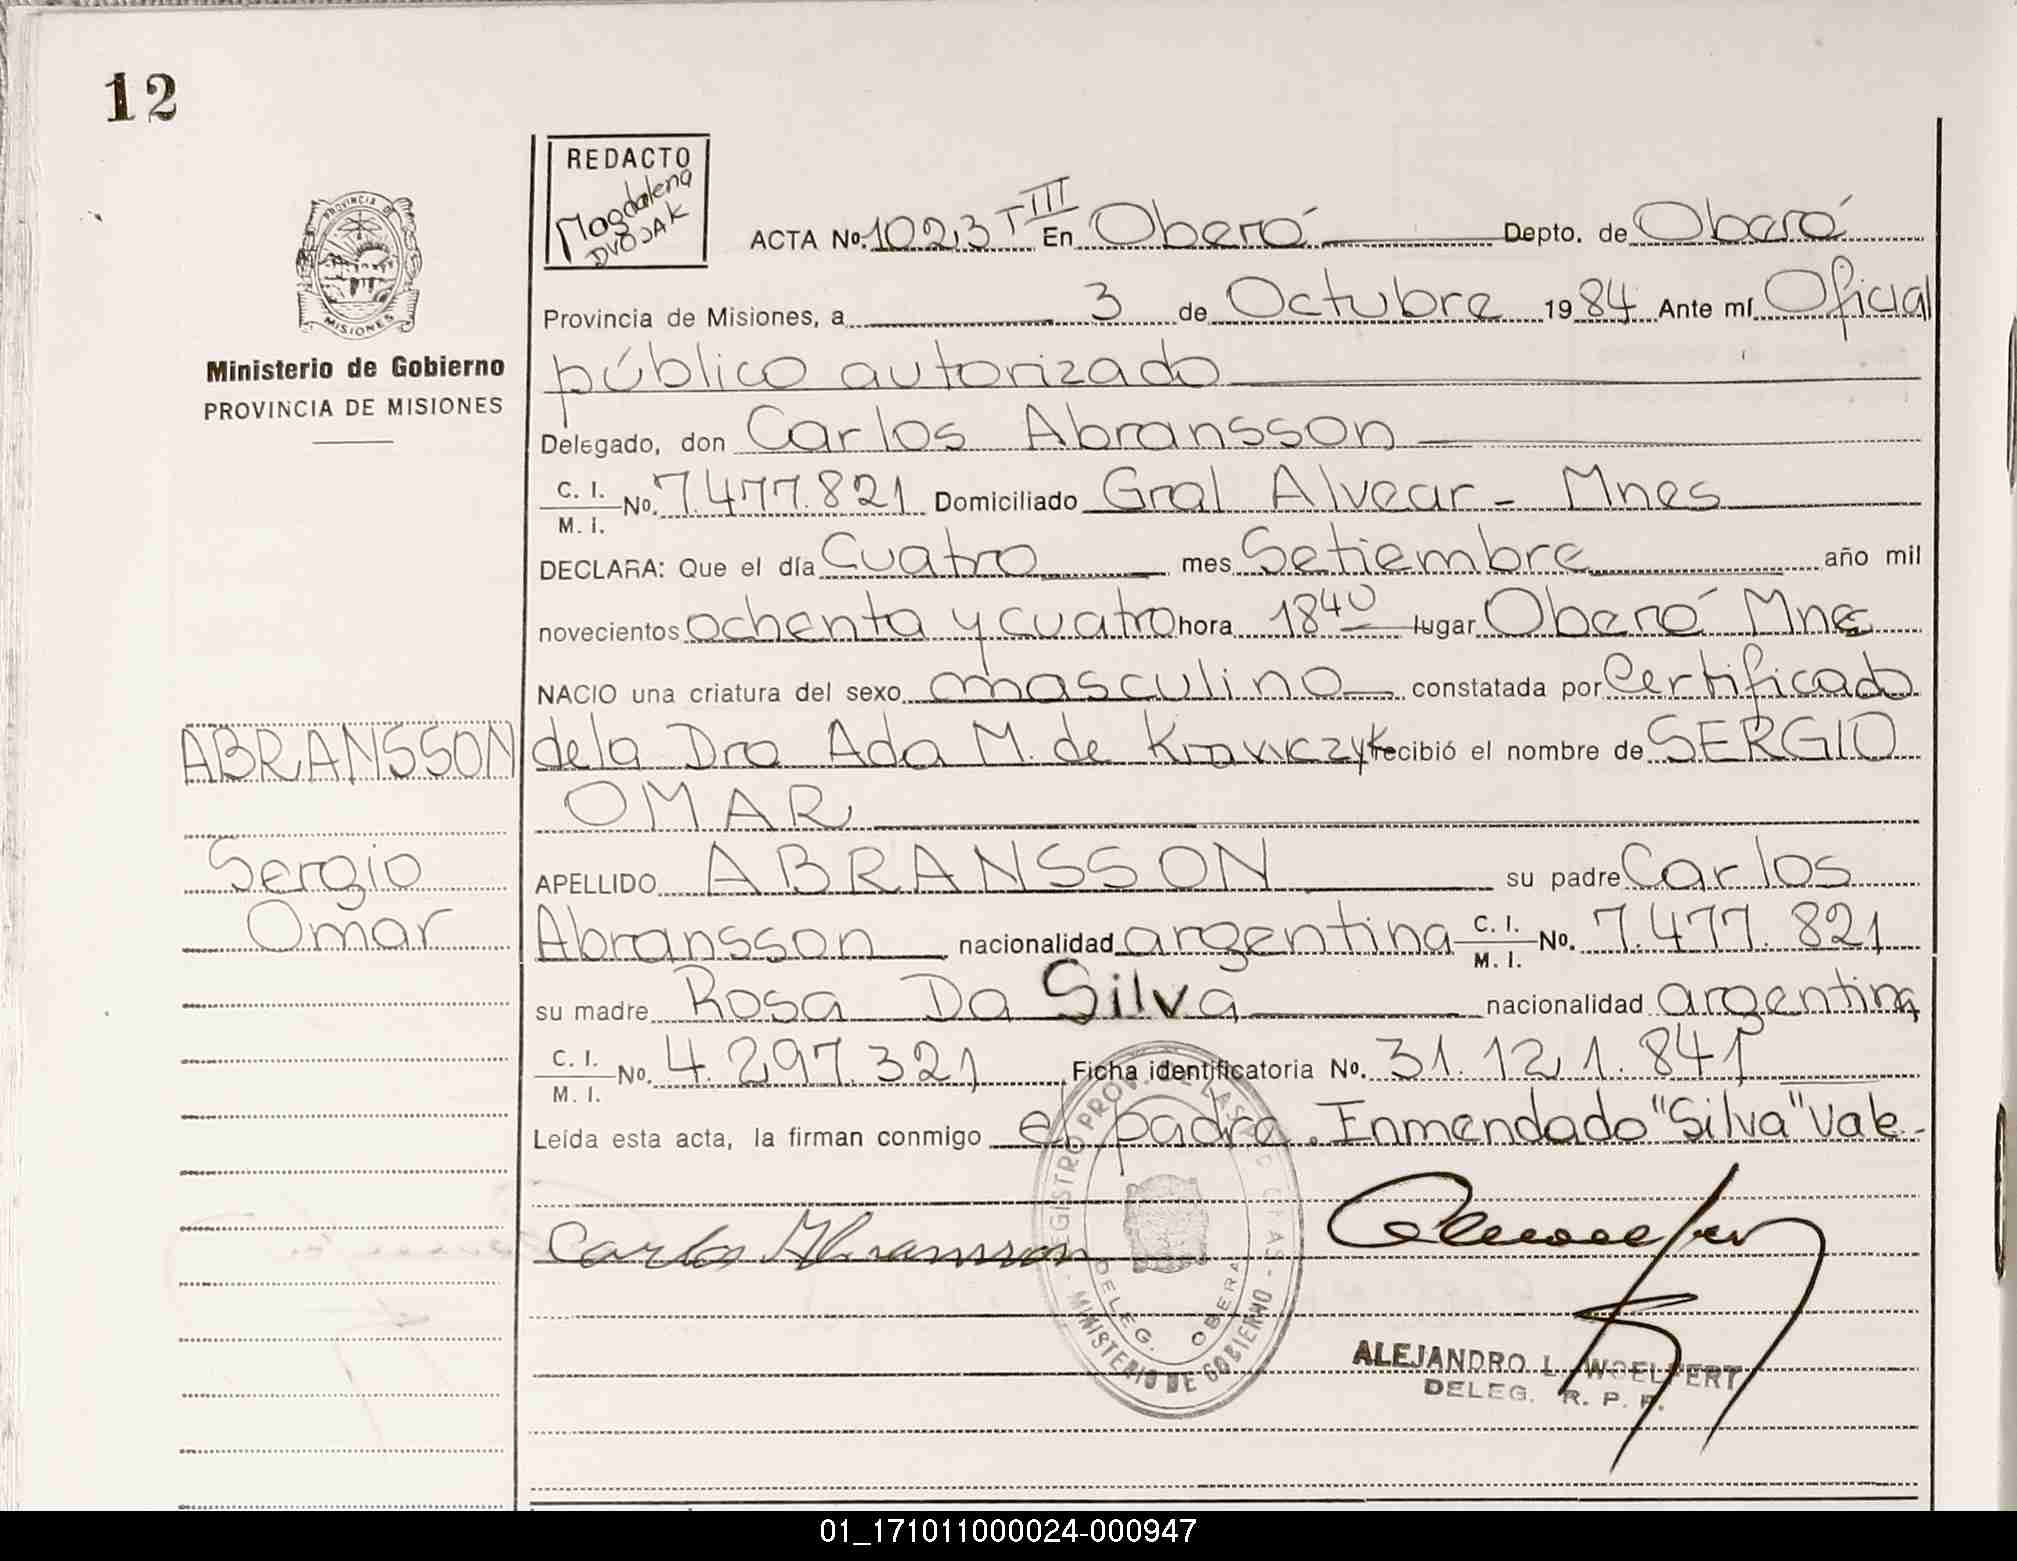 12
REDACTO
Magdalena
DVOJAK
PROVINCIA DE
MISIONES
Ministerio de Gobierno
PROVINCIA DE MISIONES
ACTA No. 1023 T III En Oberá Depto. de Oberá
Provincia de Misiones, a 3 de Octubre 1984 Ante mí Oficial
público autorizado
Delegado, don Carlos Abransson
C. I. M. I. No. 7.477.821 Domiciliado Gral Alvear - Mnes
DECLARA: Que el día cuatro mes Setiembre año mil
novecientos ochenta y cuatro hora 18 40 lugar Oberá Mnes
NACIO una criatura del sexo masculino constatada por Certificado
de la Dra Ada M. de Krawczyk recibió el nombre de SERGIO
OMAR
APELLIDO ABRANSSON su padre Carlos
Abransson nacionalidad argentina C. I. M. I. No. 7.477.821
su madre Rosa Da Silva nacionalidad argentina
C. I. M. I. No. 4.297.321 Ficha identificatoria No. 31.121.841
Leída esta acta, la firman conmigo el padre. Inmendado "Silva" Vale-
ABRANSSON
Sergio
Omar
Carlos Abransson
REGISTRO PROV. DE LAS PERSONAS
DELEG. OBERA
MINISTERIO DE GOBIERNO
ALEJANDRO L. WOELFERT
DELEG. R. P. P.
01_171011000024-000947